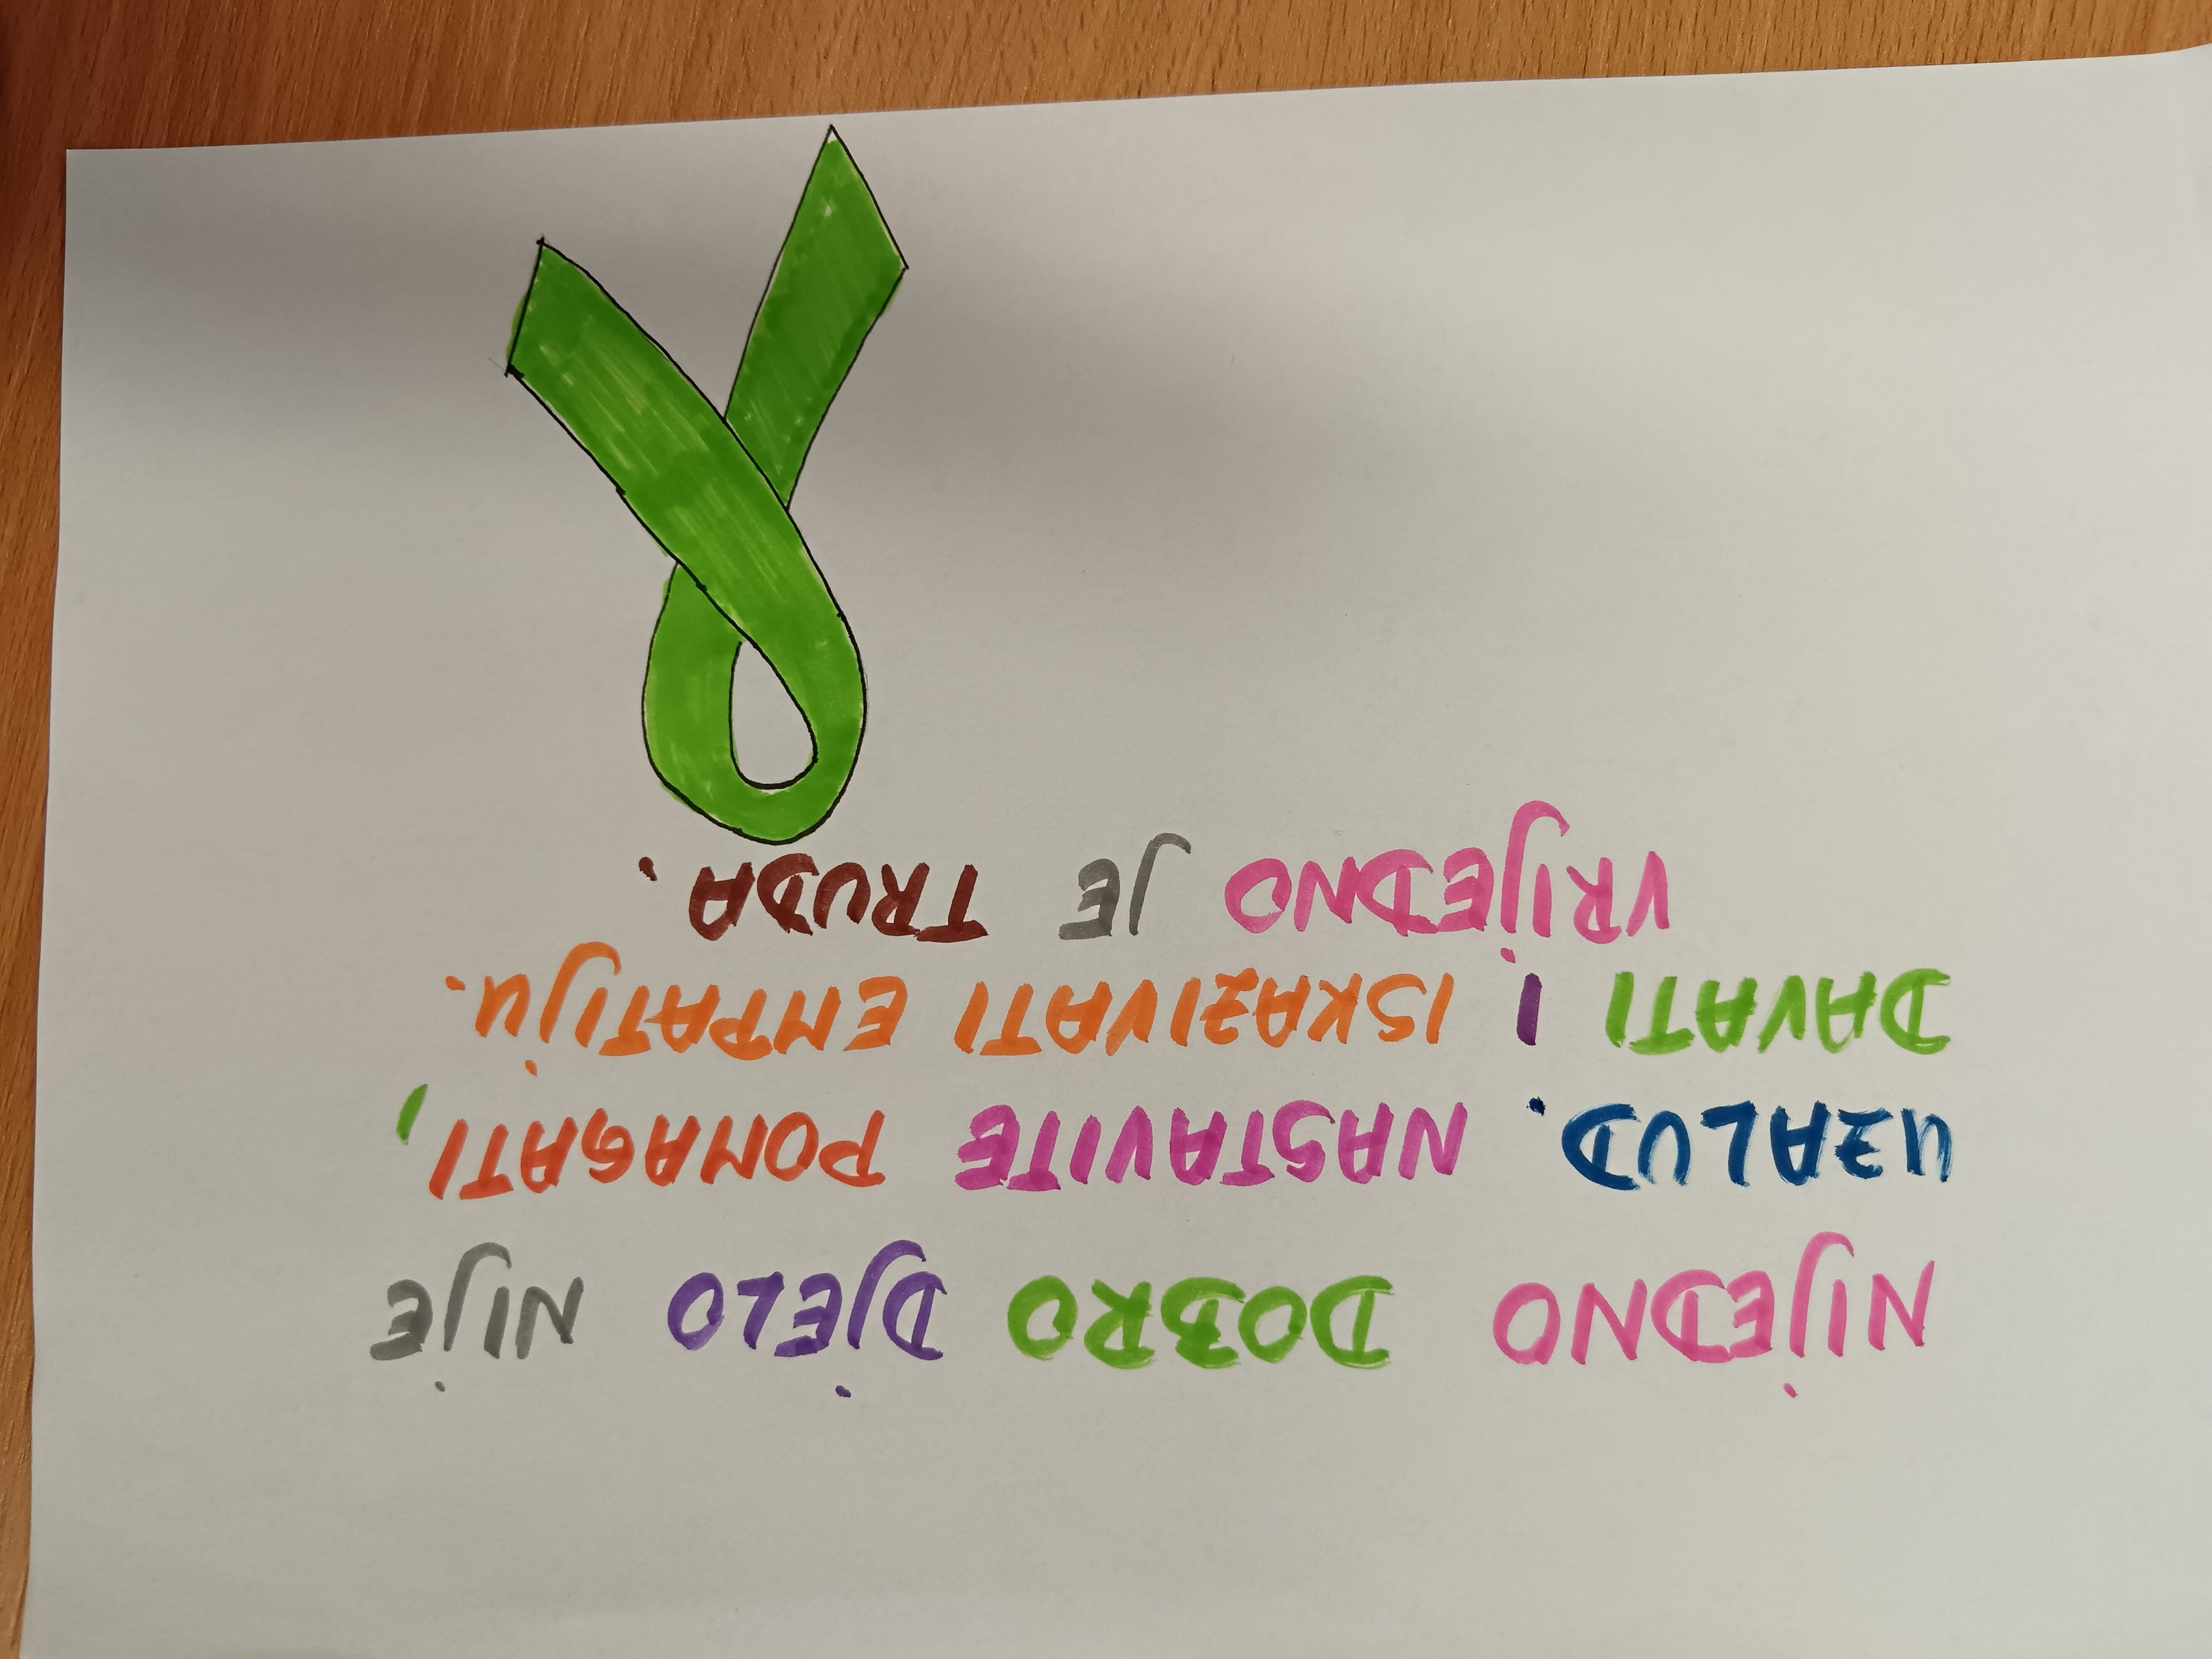 NIJEDNO DOBRO DJELO NIJE
UZALUD. NASTAVITE POMAGATI,
DAVATI I ISKAZIVATI EMPATIJU.
VRIJEDNO JE TRUDA.